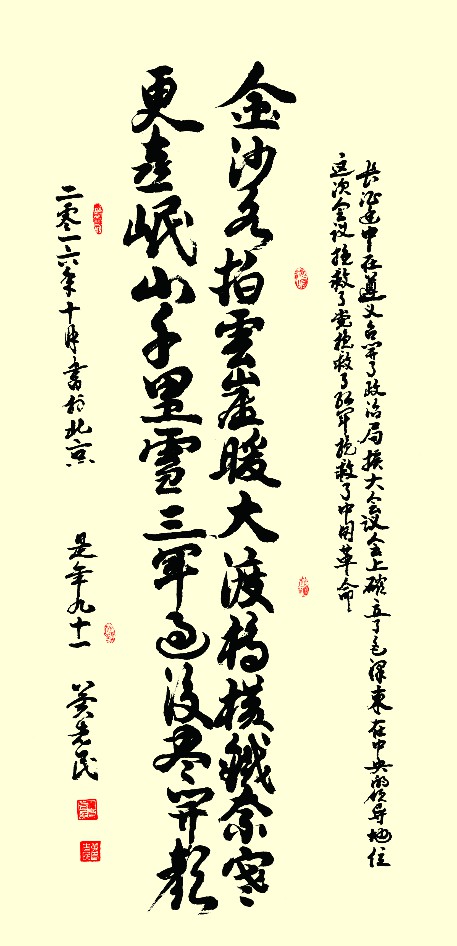 长征途中在遵义召开了政治局扩大会议会上确立了毛泽东在中央的领导地位
这次会议挽救了党挽救了红军挽救了中国革命
金沙水拍雲崖暖大渡橋横鐵索寒
更喜岷山千里雪三軍過後盡開顏
二零一六年十月書於北京 是年九十一